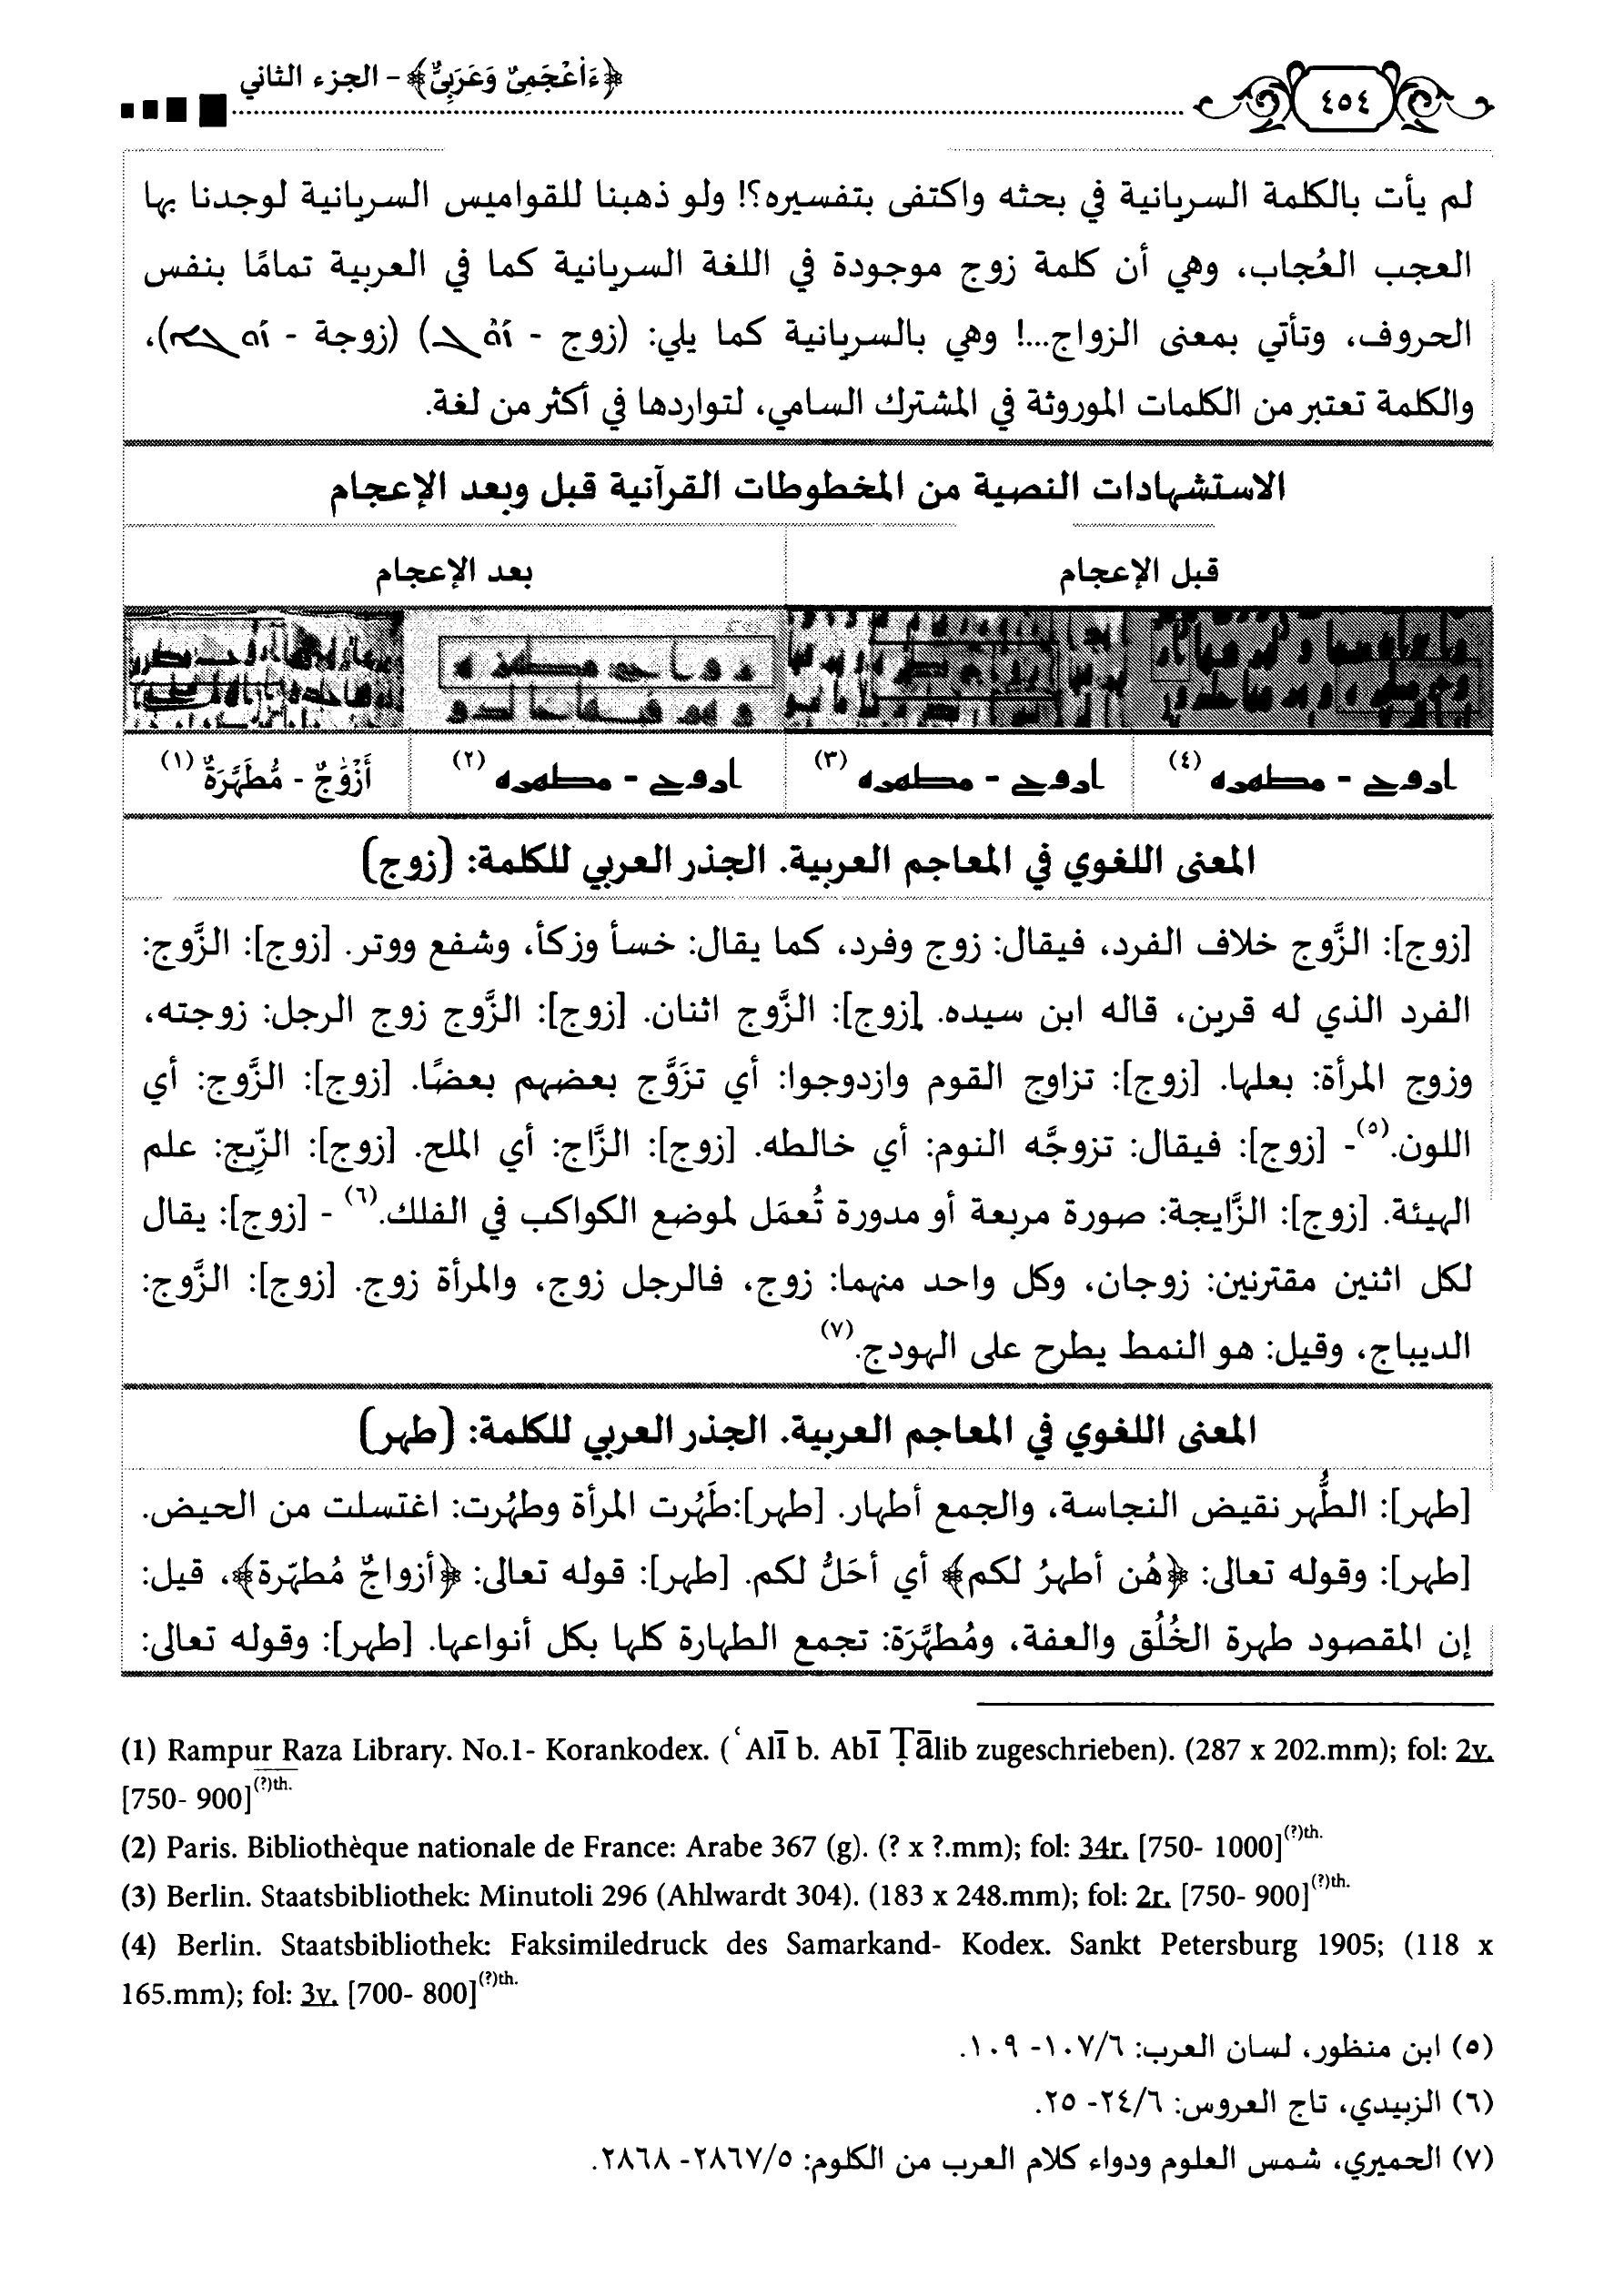 ﴿ءَا۬عْجَمِىٌّ وَعَرَبِىٌّ﴾ - الجزء الثاني
٤٥٤
لم يأت بالكلمة السريانية في بحثه واكتفى بتفسيره؟! ولو ذهبنا للقواميس السريانية لوجدنا بها
العجب العُجاب، وهي أن كلمة زوج موجودة في اللغة السريانية كما في العربية تمامًا بنفس
الحروف، وتأتي بمعنى الزواج...! وهي بالسريانية كما يلي: (زوج - ) (زوجة - )،
والكلمة تعتبر من الكلمات الموروثة في المشترك السامي، لتواردها في أكثر من لغة.
الاستشهادات النصية من المخطوطات القرآنية قبل وبعد الإعجام
قبل الإعجام بعد الإعجام
(٤) (٣) (٢) أَزْوَٰجٌ - مُّطَهَّرَةٌ (١)
المعنى اللغوي في المعاجم العربية. الجذر العربي للكلمة: (زوج)
[زوج]: الزَّوج خلاف الفرد، فيقال: زوج وفرد، كما يقال: خسأ وزكأ، وشفع ووتر. [زوج]: الزَّوج:
الفرد الذي له قرين، قاله ابن سيده. [زوج]: الزَّوج اثنان. [زوج]: الزَّوج زوج الرجل: زوجته،
وزوج المرأة: بعلها. [زوج]: تزاوج القوم وازدوجوا: أي تزَوَّج بعضهم بعضًا. [زوج]: الزَّوج: أي
اللون.(٥)- [زوج]: فيقال: تزوجَّه النوم: أي خالطه. [زوج]: الزَّاج: أي الملح. [زوج]: الزِّيج: علم
الهيئة. [زوج]: الزَّايجة: صورة مربعة أو مدورة تُعمَل لموضع الكواكب في الفلك.(٦) - [زوج]: يقال
لكل اثنين مقترنين: زوجان، وكل واحد منهما: زوج، فالرجل زوج، والمرأة زوج. [زوج]: الزَّوج:
الديباج، وقيل: هو النمط يطرح على الهودج.(٧)
المعنى اللغوي في المعاجم العربية. الجذر العربي للكلمة: (طهر)
[طهر]: الطُّهر نقيض النجاسة، والجمع أطهار. [طهر]:طَهُرت المرأة وطهُرت: اغتسلت من الحيض.
[طهر]: وقوله تعالى: ﴿هُن أطهرُ لكم﴾ أي أحَلُّ لكم. [طهر]: قوله تعالى: ﴿أزواجٌ مُطهّرة﴾، قيل:
إن المقصود طهرة الخُلُق والعفة، ومُطهَّرَة: تجمع الطهارة كلها بكل أنواعها. [طهر]: وقوله تعالى:
(1) Rampur Raza Library. No.1- Korankodex. (ʿAlī b. Abī Ṭālib zugeschrieben). (287 x 202.mm); fol: 2v.
[750- 900](?)th.
(2) Paris. Bibliothèque nationale de France: Arabe 367 (g). (? x ?.mm); fol: 34r. [750- 1000](?)th.
(3) Berlin. Staatsbibliothek: Minutoli 296 (Ahlwardt 304). (183 x 248.mm); fol: 2r. [750- 900](?)th.
(4) Berlin. Staatsbibliothek: Faksimiledruck des Samarkand- Kodex. Sankt Petersburg 1905; (118 x
165.mm); fol: 3v. [700- 800](?)th.
(٥) ابن منظور، لسان العرب: ١٠٧/٦- ١٠٩.
(٦) الزبيدي، تاج العروس: ٢٤/٦- ٢٥.
(٧) الحميري، شمس العلوم ودواء كلام العرب من الكلوم: ٢٨٦٧/٥- ٢٨٦٨.